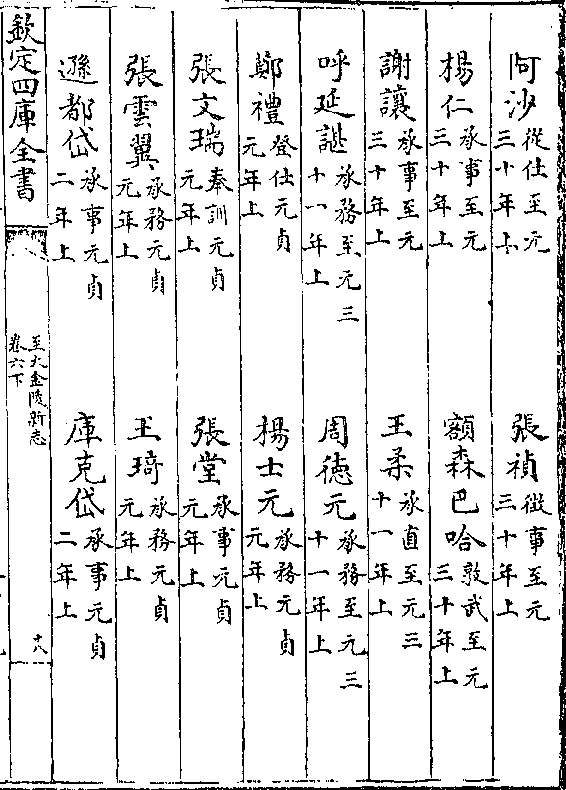 阿沙從仕至元三十年上　張禎徴事至元三十年上
楊仁承事至元三十年上　額森巴哈敦武至元三十年上
謝讓承事至元三十年上　王柔承直至元三十一年上
呼延諶承務至元三十一年上　周德元承務至元三十一年上
鄭禮登仕元貞元年上　楊士元承務元貞元年上
張文瑞奉訓元貞元年上　張堂承事元貞元年上
張雲翼承務元貞元年上　王琦承務元貞元年上
遜都岱承事元貞二年上　庫克岱承事元貞二年上
欽定四庫全書
至大金陵新志
卷六下
十八